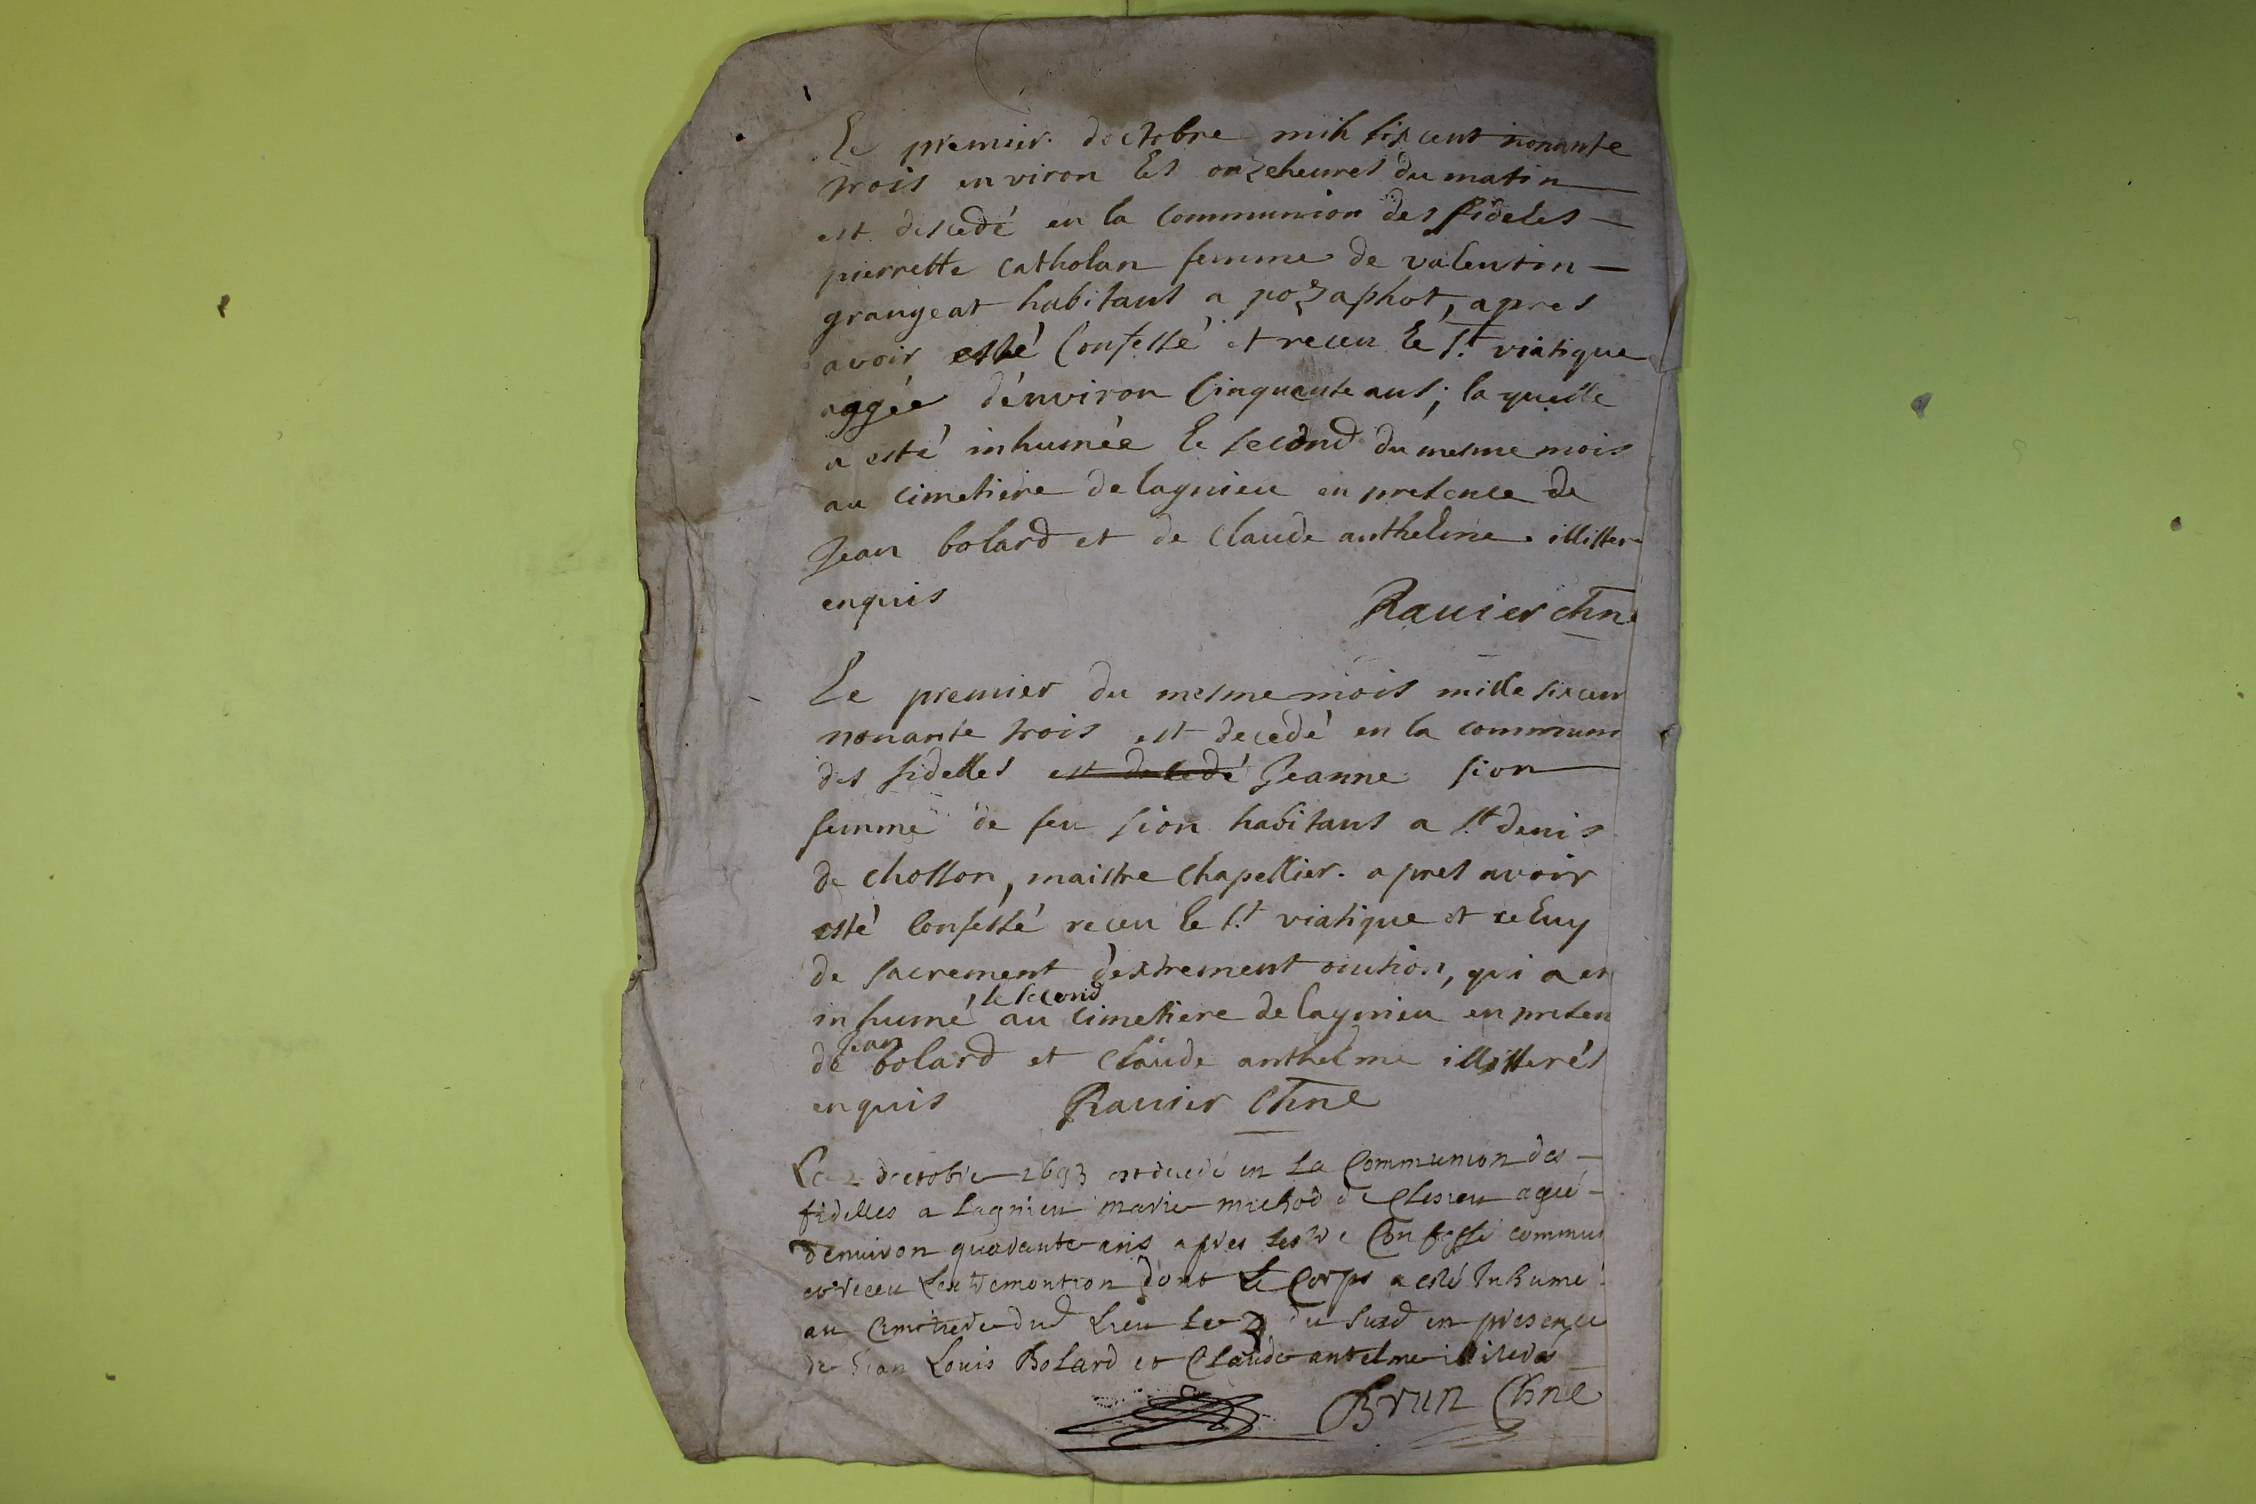 Le premier doctobre mih six cent nonante
trois environ les onzeheures du matin
est descedé en la communion des fideles
pierrette catholan femme de valentin
grangeat habitans a pozaphot, apres
avoir esté confessé et receu le st. viatique
aggée d'énviron cinquante ans; la quelle
a esté inhumée le second du mesme mois
au cimetiere de lagnieu en presence de
Jean bolard et de claude anthelme illitter
enquis
Ravier chne
Le premier du mesme mois mille six cen
nonante trois est decedé en la commun
des fidelles est decedé Jeanne sion
femme de feu sion habitans a st denis
de chosson, maistre chapellier. apres avoir
esté confessé receu le st. viatique et celuy
de sacrement d'extrement onction, qui a es
inhumé le second au cimetiere de lagnieu en presen
de Jean bolard et claude anthelme illitterés
enquis Ravier chne
Le 2 doctobre 1693 est decedé en la Communion des
fidelles a Lagnieu marie michod de agee
denuiron quarante ans apres sestre Confessé commun
et receu Lextremontion dont Le Corps a esté Inhumé
au Cimetiere dud Lieu Le 3 du susd en presence
de Jean Louis Bolard et Claude antelme illiterés
Brun Chne